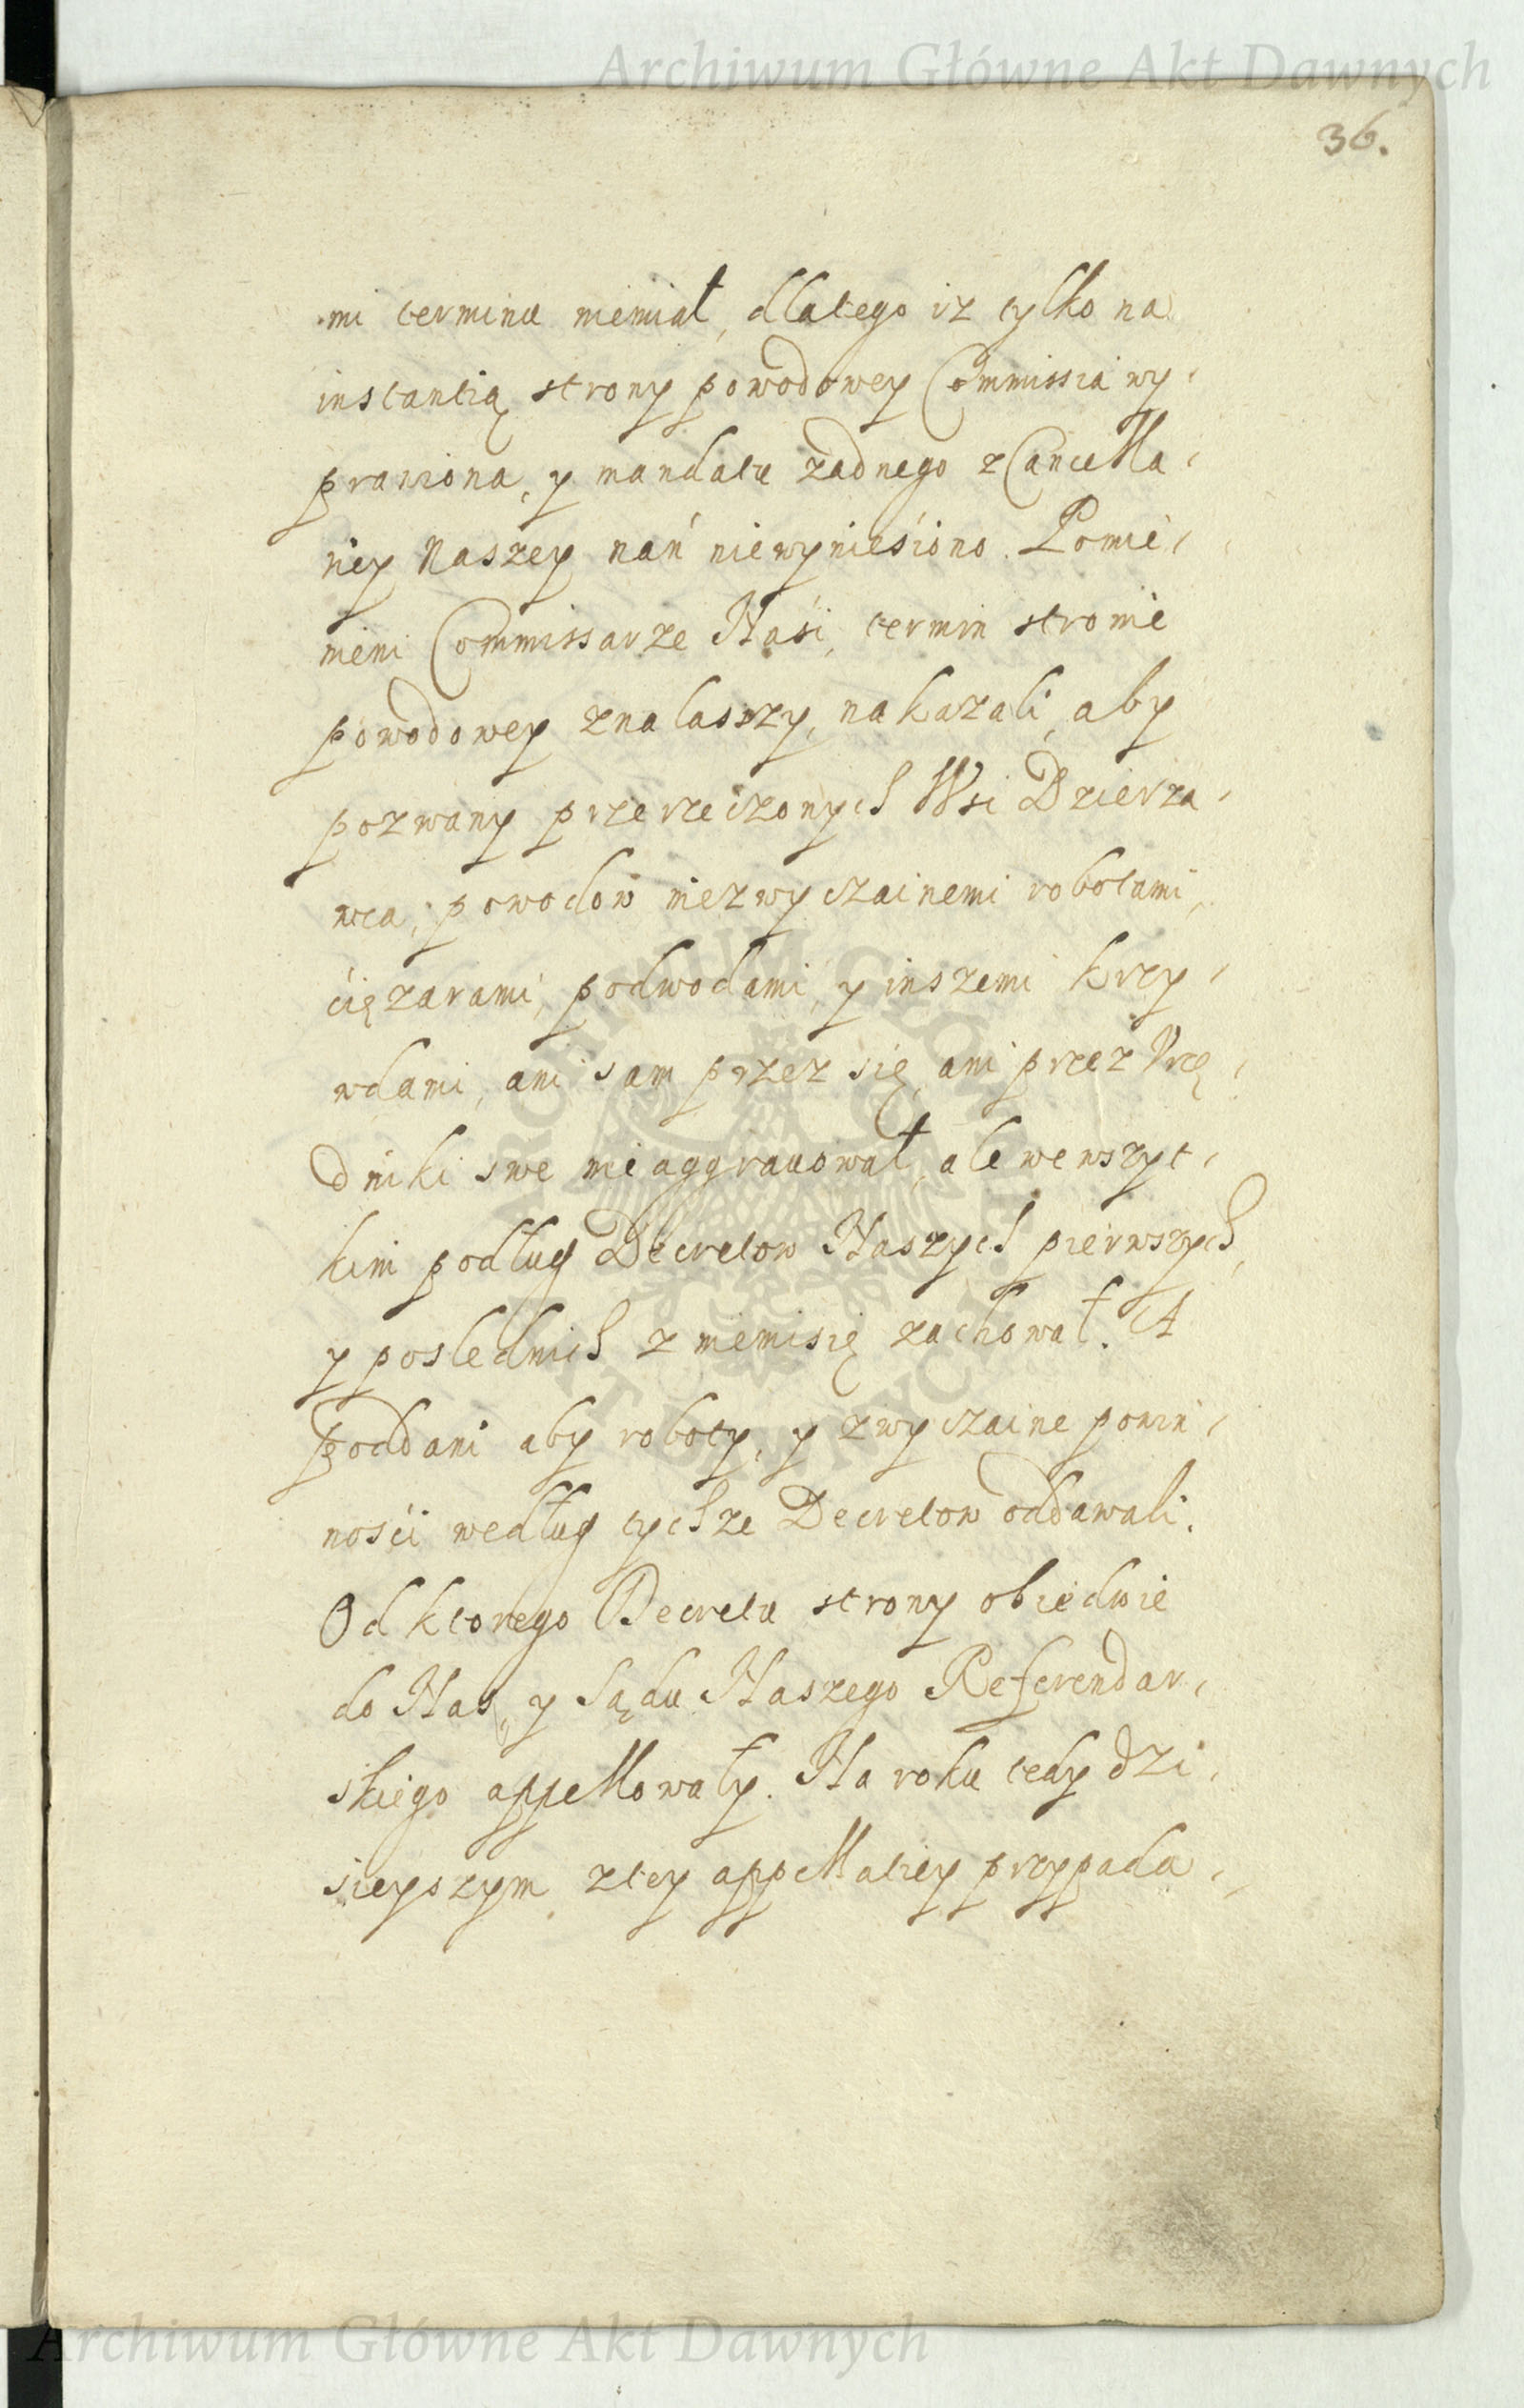 Archiwum Główne Akt Dawnych
36.
mi terminu niemiał, dlatego iz tylko na
instantią strony powodowey Commissia wy,
prawiona, y mandatu zadnego z Cancella,
riey Naszey nań niewynieśiono. Pomie,
nieni Commissarze Naśi, termin stronie
powodowey znalasszy, nakazali, aby
pozwany przerzeczonych Wsi Dzierza,
wca, powodow niezwyczainemi robotami,
ćięzarami, podwodami, y inszemi krzy,
wdami, ani sam przez się, ani przez Vrzę,
dniki swe nie aggrauował, ale we wszyt,
kim podług Decretow Naszych pierwszych,
y poslednich z niemi się zachował. A
poddani aby roboty, y zwyczaine powin,
nośći według tychze Decretow oddawali.
Od ktorego Decretu strony obiedwie
do Nas, y Sądu Naszego Referendar,
skiego appellowały. Na roku tedy dzi,
sieyszym z tey appellatiey przypada,
ARCHIWUM GŁÓWNE AKT DAWNYCH
Archiwum Główne Akt Dawnych